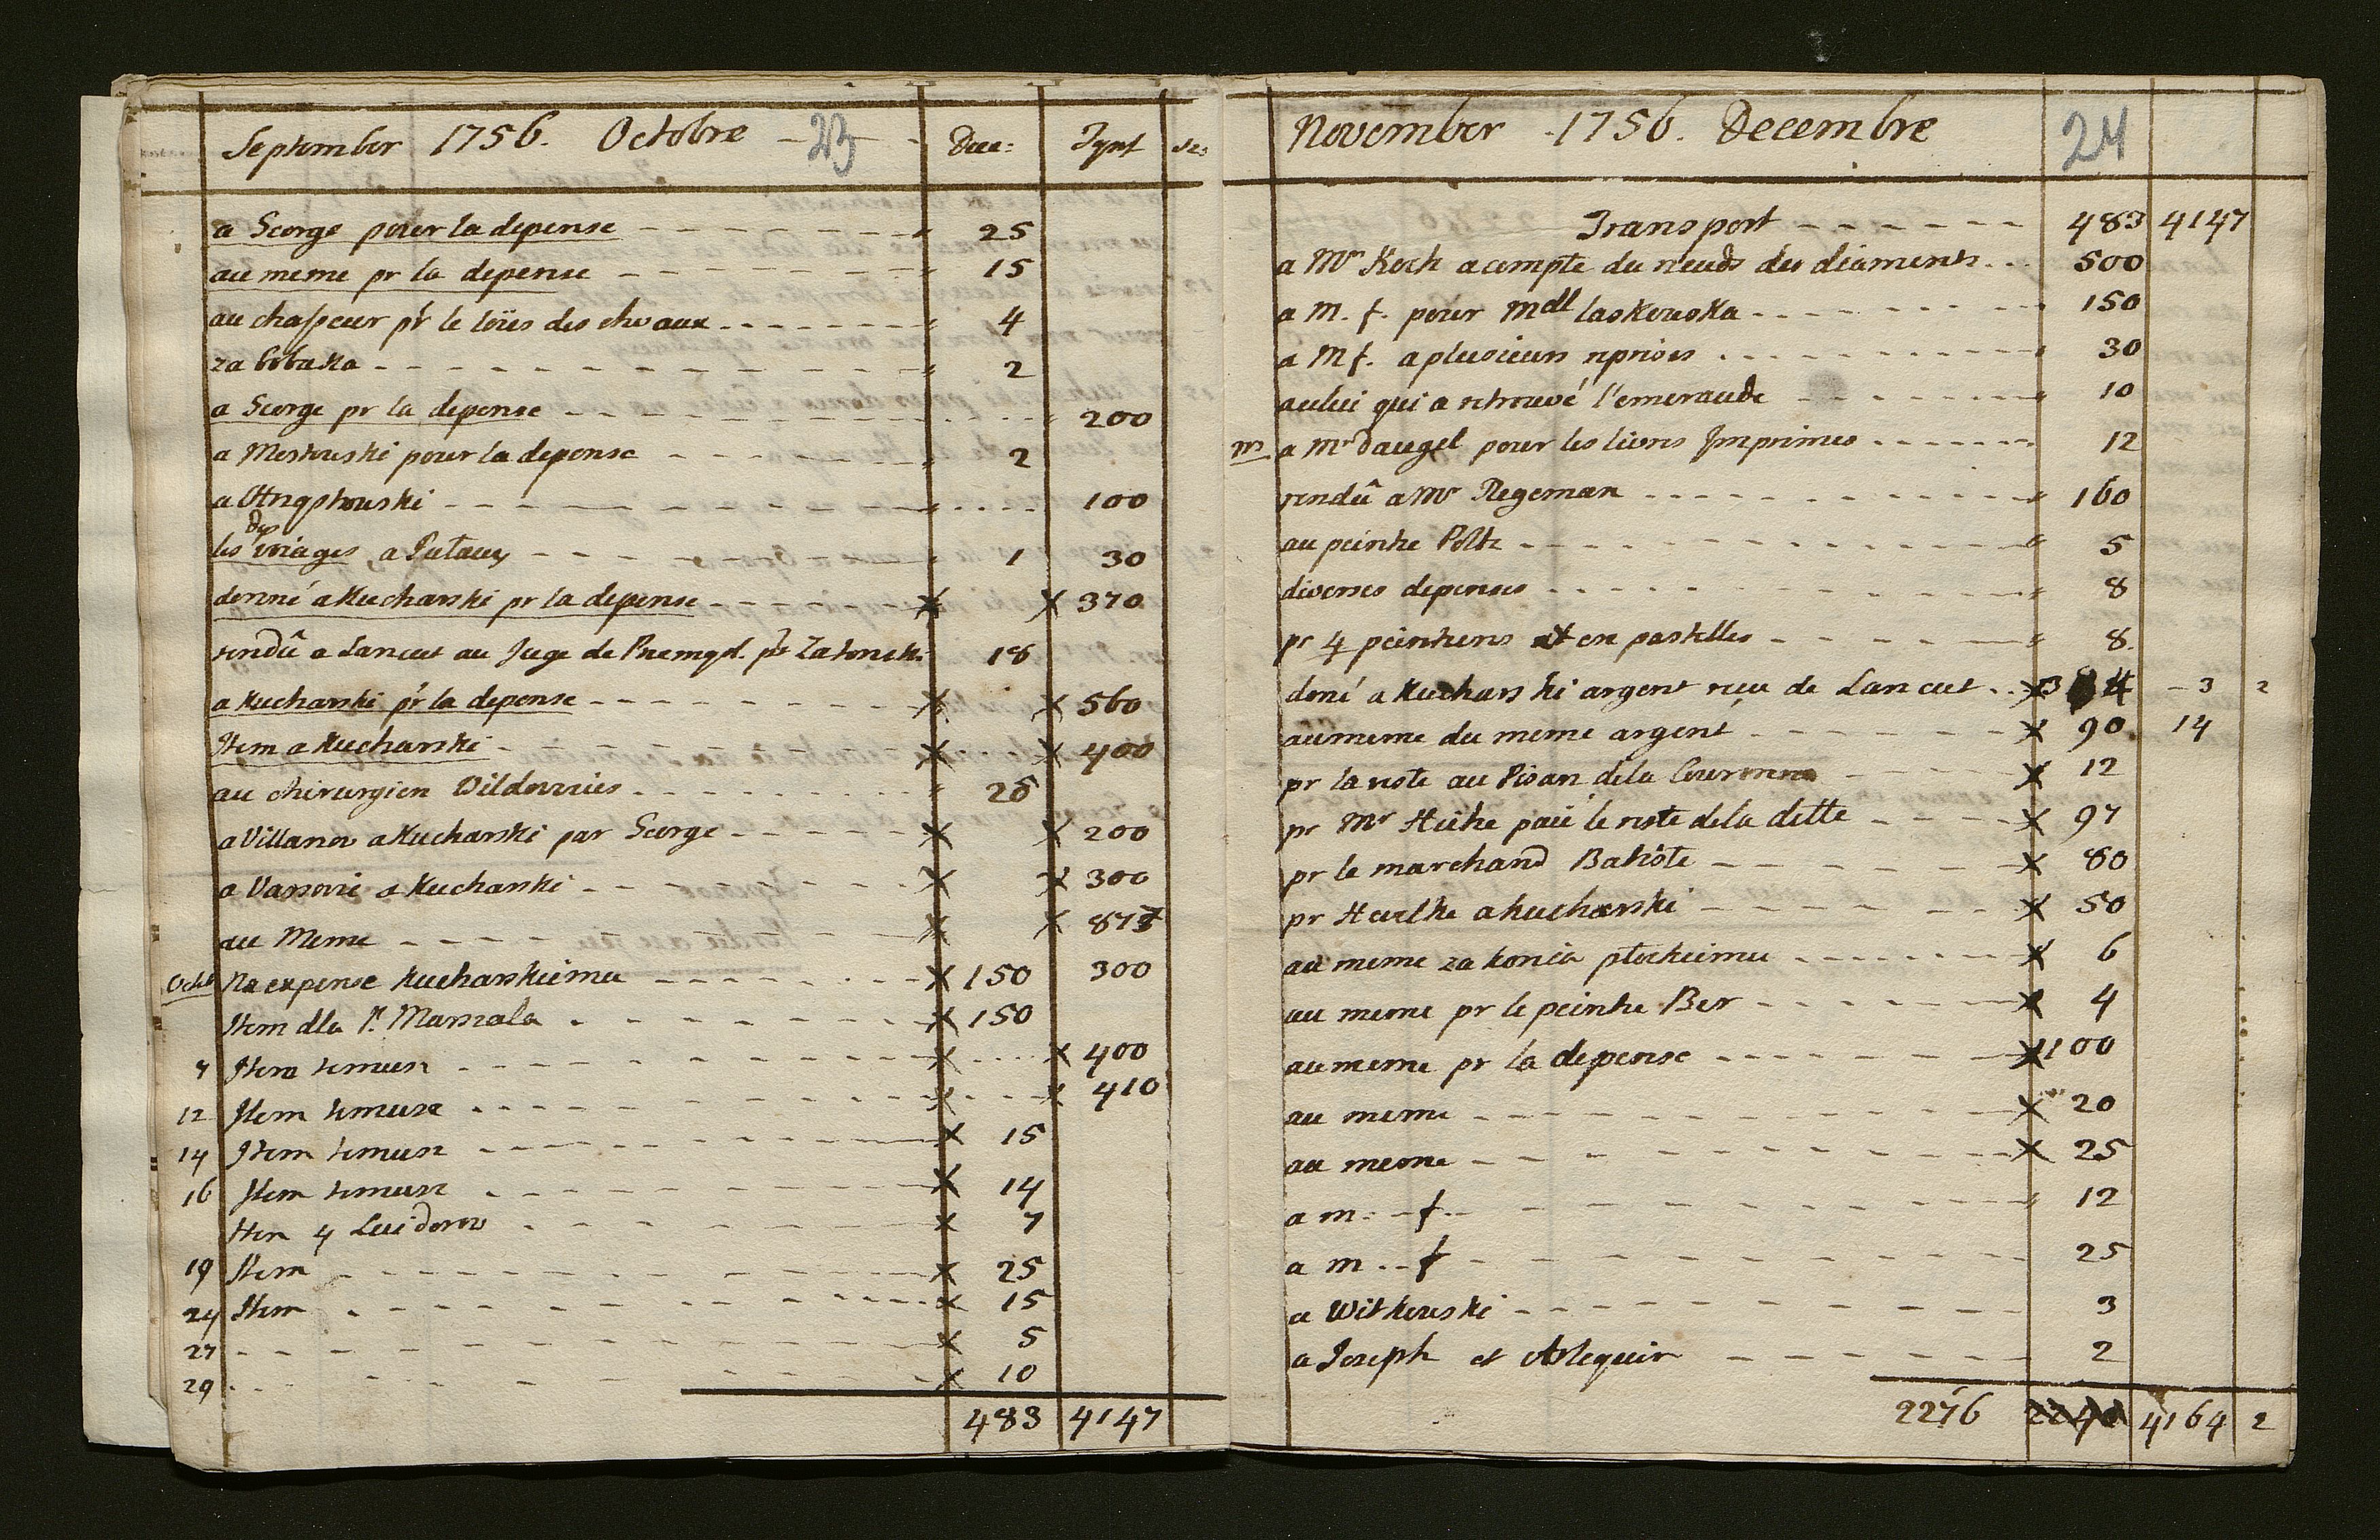 September 1756. Octobre 23 Duc: Tynf sz:
a George pour la depense 25
au meme pr la depense 15
au chasseur pr le loïes des chevaux 4
za bobaka 2
a George pr la depense 200
a pour la depense 2
a 100
les voiages, a Putawy 1 30
des
donné a Kucharski pr la depense x x 370
rendû a Lancut au Juge de pr 18
a Kucharski pr la depense x x 560
Item a Kucharski x x 400
au chirurgien 25
a Villanov a Kucharski par George x x 200
a Varsovie a Kucharski x x 300
au Meme x x 877
Octb Na expense Kucharskiemu x 150 300
Item dla P. Marszala x 150
7 Item temusz x x 400
12 Item temusz x x 410
14 Item temusz x 15
16 Item temusz x 14
Item 4 Luidorow x 7
19 Item x 25
24 Item x 15
27 x 5
29 x 10
483 4147
November 1756. Decembre 24
Transport 483 4147
a Mr Koch acompte du neuds des diaments 500
a M. f. pour Mdll laskouska 150
a M f. a plusieurs reprises 30
a celui qui a retrouvé l'emeraude 10
a Mr daugel pour les livres Jmprimes 12
rendû a Mr Regeman 160
au peintre Poltz 5
diverses depenses 8
pr 4 peintures en pastelles 8.
doné a Kucharski argent reçu de Lancut x 3 2
au meme du meme argent x 90 14
pr la reste au Pisarz de la Couronne x 12
pr Mr paié le reste de la dette x 97
pr le marchand x 80
pr a Kucharski x 50
au meme za konia x 6
au meme pr le peintre Ber x 4
au meme pr la depense x 100
au meme x 20
au meme x 25
a m: f. 12
a m f 25
a Witkouski 3
a Joseph et Arlequin 2
2276 4164 2